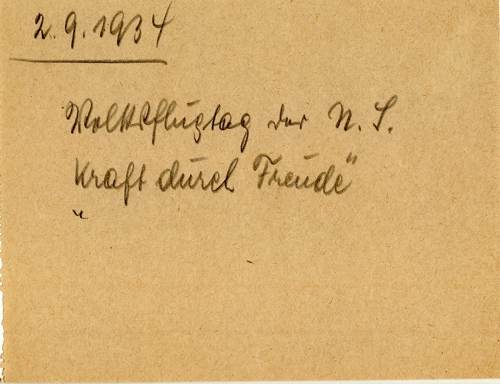 2.9.1934
Volksflugtag der N. S.
„Kraft durch Freude"